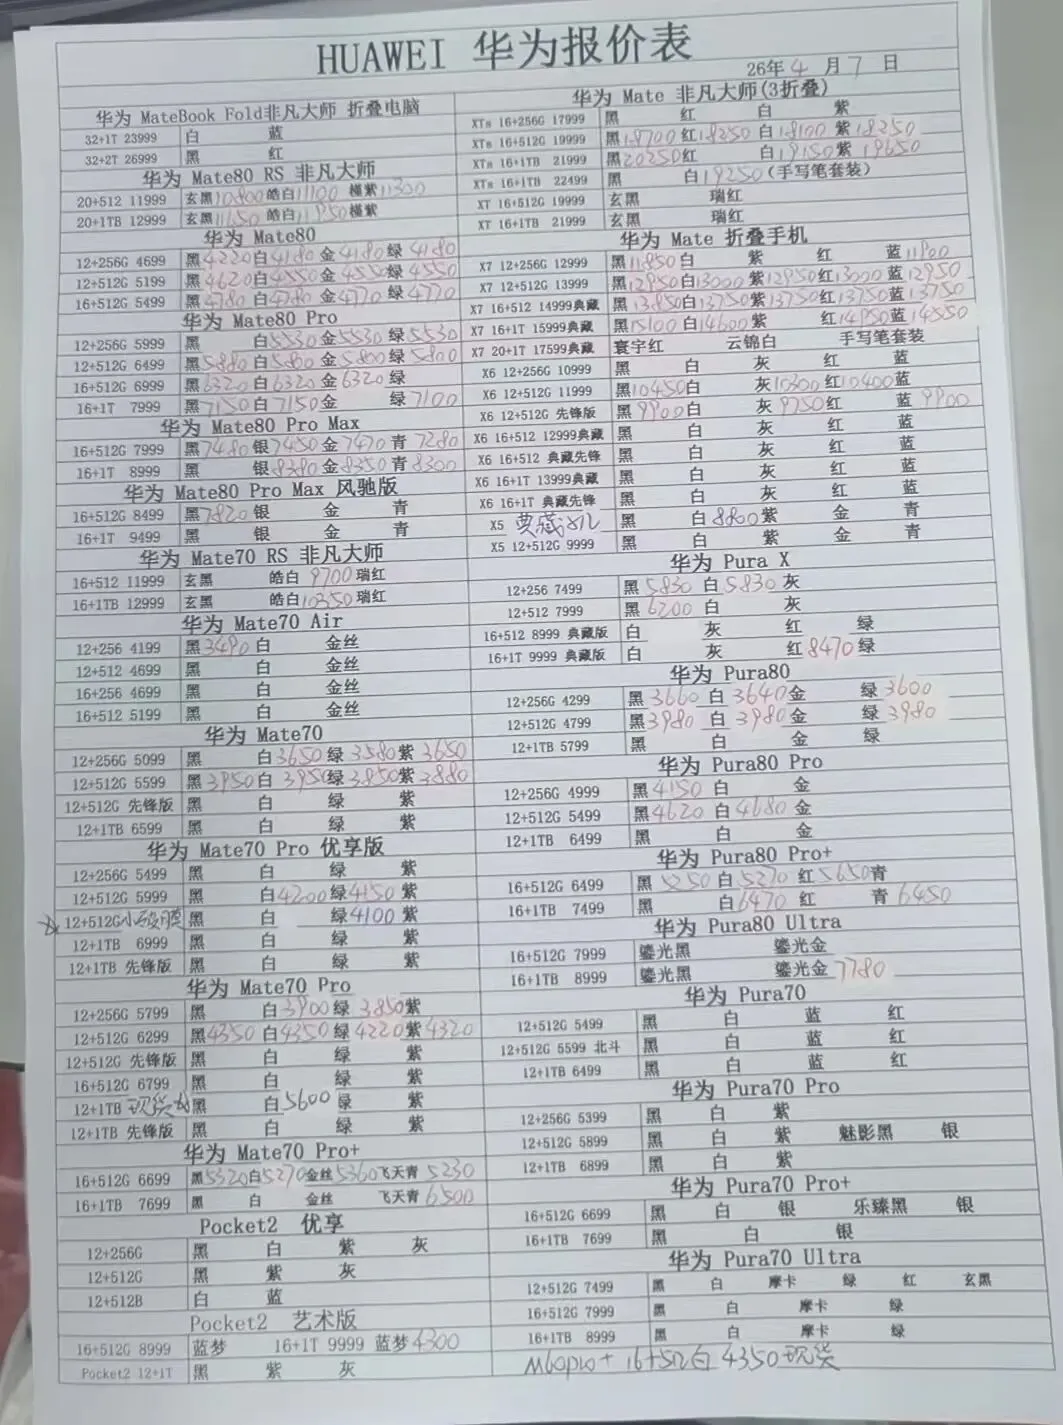 HUAWEI 华为报价表
26年4月7日
华为 MateBook Fold非凡大师 折叠电脑
32+1T 23999 白 蓝
32+2T 26999 黑 红
华为 Mate80 RS 非凡大师
20+512 11999 玄黑10800皓白11100 槿紫11300
20+1TB 12999 玄黑11650皓白11950槿紫
华为 Mate80
12+256G 4699 黑4220白4180金4180绿4180
12+512G 5199 黑4620白4550金4550绿4550
16+512G 5499 黑4780白4780金4770绿4770
华为 Mate80 Pro
12+256G 5999 黑 白5530金5530绿5530
12+512G 6499 黑5880白5800金5800绿5800
16+512G 6999 黑6320白6320金6320绿
16+1T 7999 黑7150白7150金 绿7100
华为 Mate80 Pro Max
16+512G 7999 黑7480银7450金7470青7280
16+1T 8999 黑 银8380金8350青8300
华为 Mate80 Pro Max 风驰版
16+512G 8499 黑7820银 金 青
16+1T 9499 黑 银 金 青
华为 Mate70 RS 非凡大师
16+512 11999 玄黑 皓白9700瑞红
16+1TB 12999 玄黑 皓白10350瑞红
华为 Mate70 Air
12+256 4199 黑3490白 金丝
12+512 4699 黑 白 金丝
16+256 4699 黑 白 金丝
16+512 5199 黑 白 金丝
华为 Mate70
12+256G 5099 黑 白3650绿3580紫3650
12+512G 5599 黑3950白3950绿3850紫3880
12+512G 先锋版 黑 白 绿 紫
12+1TB 6599 黑 白 绿 紫
华为 Mate70 Pro 优享版
12+256G 5499 黑 白 绿 紫
12+512G 5999 黑 白4200绿4150紫
12+512G小破膜 黑 白 绿4100紫
12+1TB 6999 黑 白 绿 紫
12+1TB 先锋版 黑 白 绿 紫
华为 Mate70 Pro
12+256G 5799 黑 白3900绿3850紫
12+512G 6299 黑4350白4350绿4220紫4320
12+512G 先锋版 黑 白 绿 紫
16+512G 6799 黑 白 绿 紫
12+1TB 现货 黑 白5600绿 紫
12+1TB 先锋版 黑 白 绿 紫
华为 Mate70 Pro+
16+512G 6699 黑5320白5270金丝5360飞天青5230
16+1TB 7699 黑 白 金丝 飞天青6500
Pocket2 优享
12+256G 黑 白 紫 灰
12+512G 黑 紫 灰
12+512B 白 蓝
Pocket2 艺术版
16+512G 8999 蓝梦 16+1T 9999 蓝梦4300
Pocket2 12+1T 黑 紫 灰
华为 Mate 非凡大师(3折叠)
XTs 16+256G 17999 黑 红 白 紫
XTs 16+512G 19999 黑18700红18250白18100紫18250
XTs 16+1TB 21999 黑20250红 白19150紫19650
XTs 16+1TB 22499 黑 白19250(手写笔套装)
XT 16+512G 19999 玄黑 瑞红
XT 16+1TB 21999 玄黑 瑞红
华为 Mate 折叠手机
X7 12+256G 12999 黑11850白 紫 红 蓝11900
X7 12+512G 13999 黑12950白13000紫12950红13000蓝12950
X7 16+512 14999典藏 黑13850白13750紫13750红13750蓝13750
X7 16+1T 15999典藏 黑15100白14600紫 红14950蓝14550
X7 20+1T 17599典藏 寰宇红 云锦白 手写笔套装
X6 12+256G 10999 黑 白 灰 红 蓝
X6 12+512G 11999 黑10450白 灰10300红10400蓝
X6 12+512G 先锋版 黑9900白 灰9750红 蓝9900
X6 16+512 12999典藏 黑 白 灰 红 蓝
X6 16+512 典藏先锋 黑 白 灰 红 蓝
X6 16+1T 13999典藏 黑 白 灰 红 蓝
X6 16+1T 典藏先锋 黑 白 灰 红 蓝
X5 典藏512 黑 白8800紫 金 青
X5 12+512G 9999 黑 白 紫 金 青
华为 Pura X
12+256 7499 黑5830白5830灰
12+512 7999 黑6200白 灰
16+512 8999 典藏版 白 灰 红 绿
16+1T 9999 典藏版 白 灰 红8470绿
华为 Pura80
12+256G 4299 黑3660白3640金 绿3600
12+512G 4799 黑3980白3980金 绿3980
12+1TB 5799 黑 白 金 绿
华为 Pura80 Pro
12+256G 4999 黑4150白 金
12+512G 5499 黑4620白4680金
12+1TB 6499 黑 白 金
华为 Pura80 Pro+
16+512G 6499 黑5250白5270红5650青
16+1TB 7499 黑 白6470红 青6450
华为 Pura80 Ultra
16+512G 7999 鎏光黑 鎏光金
16+1TB 8999 鎏光黑 鎏光金7780
华为 Pura70
12+512G 5499 黑 白 蓝 红
12+512G 5599 北斗 黑 白 蓝 红
12+1TB 6499 黑 白 蓝 红
华为 Pura70 Pro
12+256G 5399 黑 白 紫
12+512G 5899 黑 白 紫 魅影黑 银
12+1TB 6899 黑 白 紫
华为 Pura70 Pro+
16+512G 6699 黑 白 银 乐臻黑 银
16+1TB 7699 黑 白 银
华为 Pura70 Ultra
12+512G 7499 黑 白 摩卡 绿 红 玄黑
16+512G 7999 黑 白 摩卡 绿
16+1TB 8999 黑 白 摩卡 绿
M60pro+ 16+512白4350现货